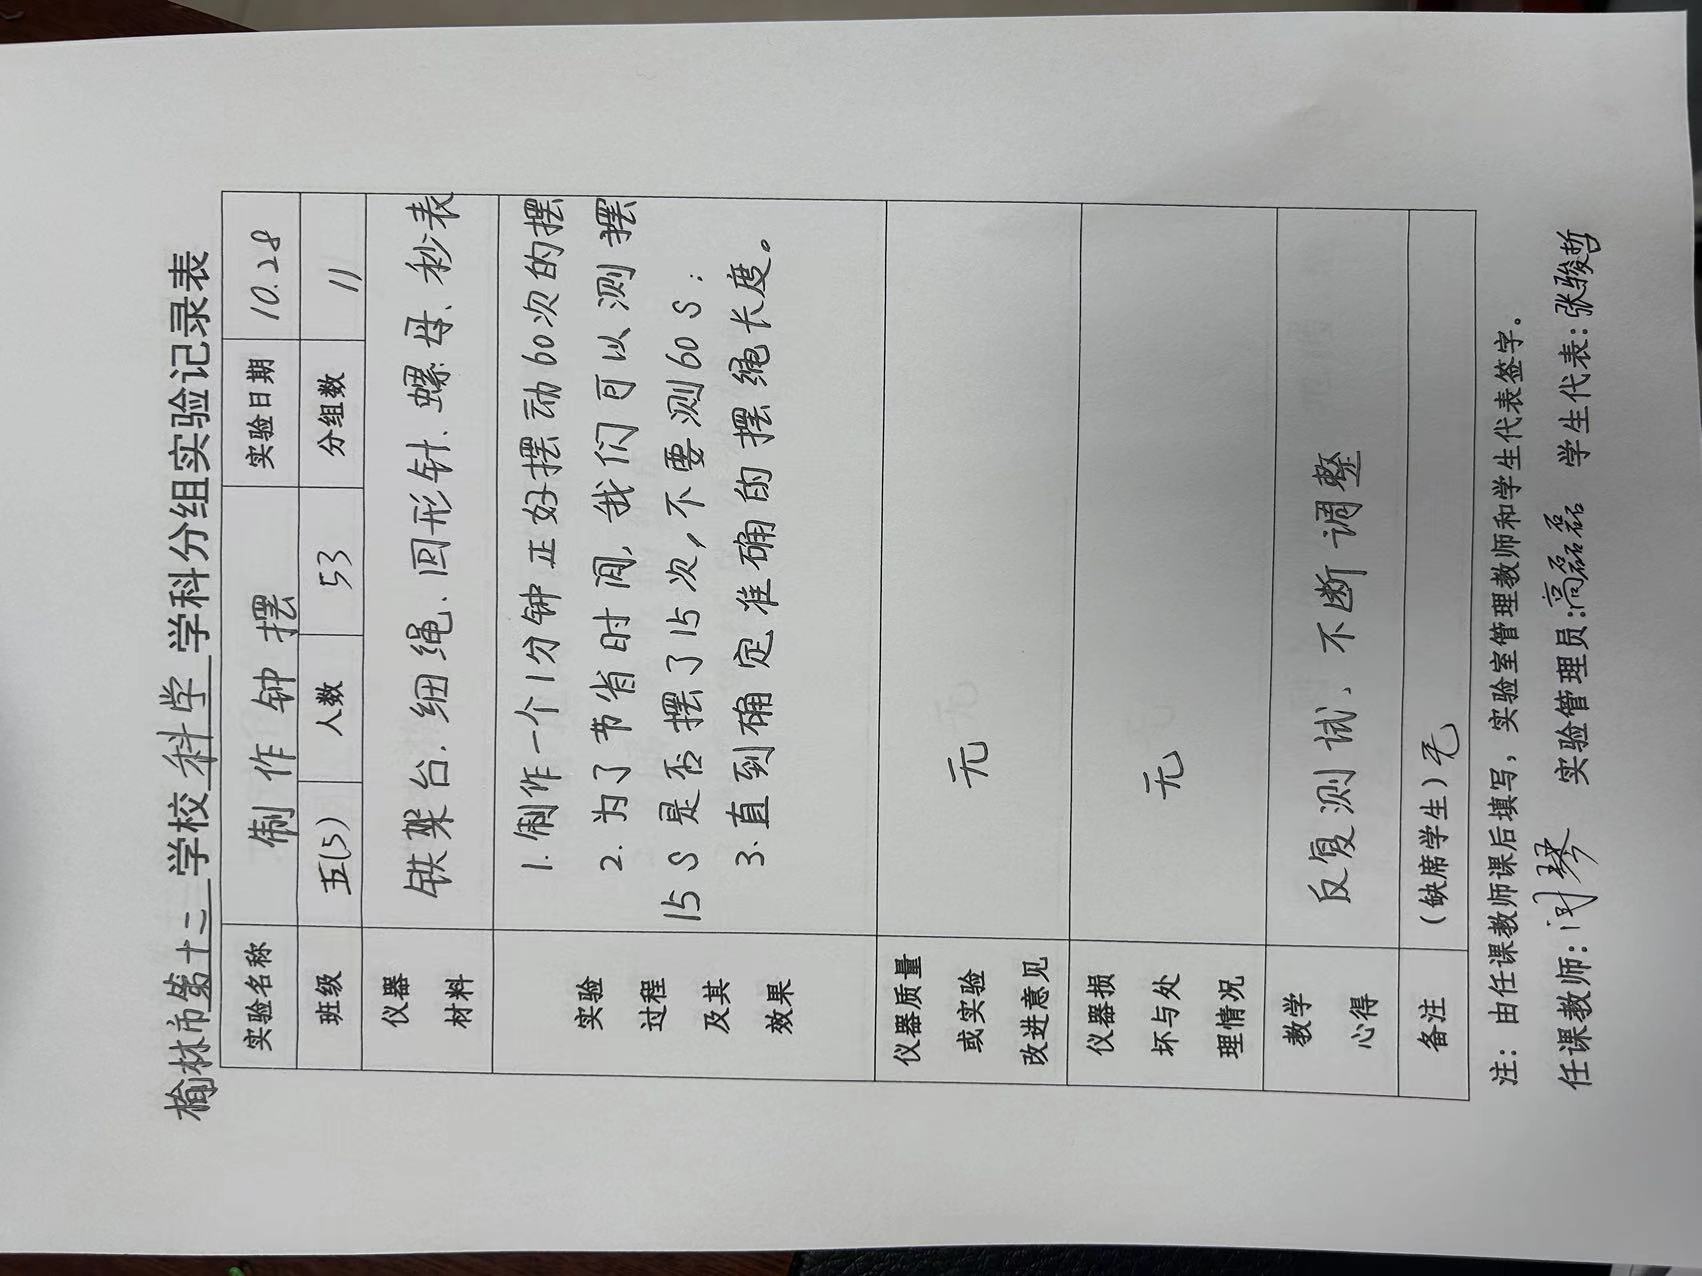 榆林市第十二学校 科学 学科分组实验记录表
实验名称 制作钟摆 实验日期 10.28
班级 五(5) 人数 53 分组数 11
仪器
材料
铁架台、细绳、回形针、螺母、秒表
实验
过程
及其
效果
1.制作一个1分钟正好摆动60次的摆
2.为了节省时间,我们可以测摆
15S是否摆了15次,不要测60S;
3.直到确定准确的摆绳长度。
仪器质量
或实验
改进意见
无
仪器损
坏与处
理情况
无
教学
心得
反复测试、不断调整
备注 (缺席学生)无
注:由任课教师课后填写,实验室管理教师和学生代表签字。
任课教师: 琴 实验管理员:高磊磊 学生代表:张骏哲